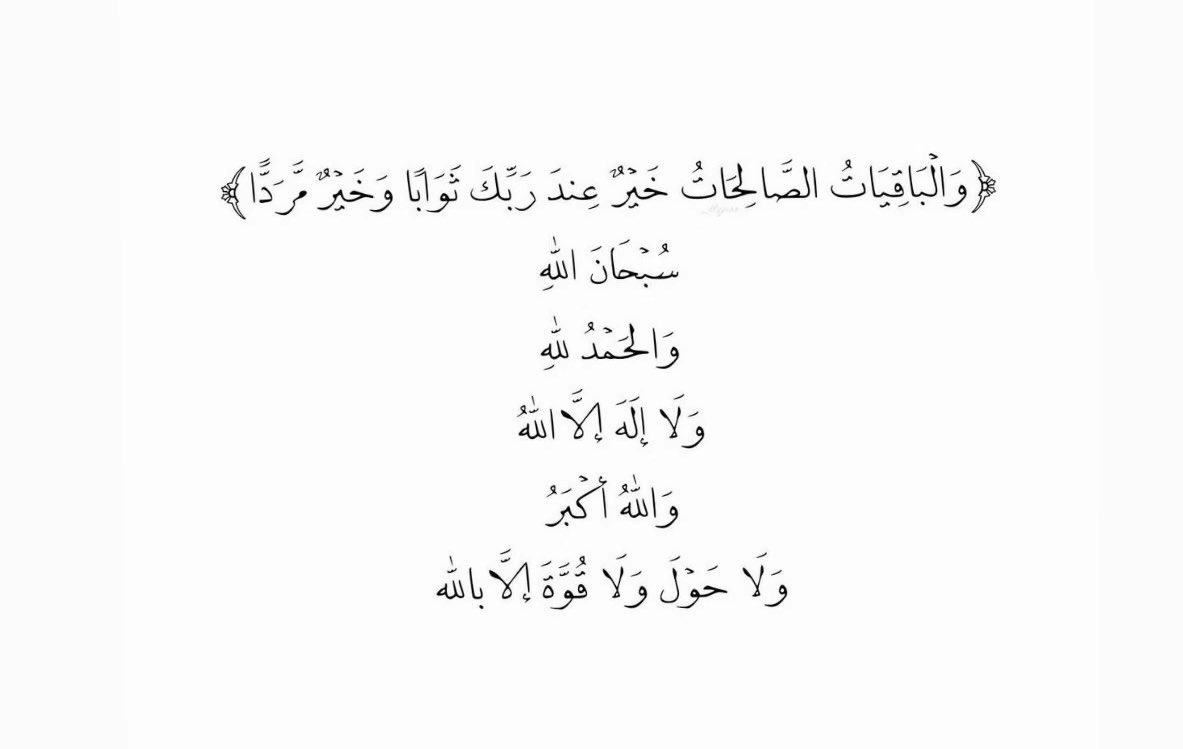 ﴿وَالْبَاقِيَاتُ الصَّالِحَاتُ خَيْرٌ عِندَ رَبِّكَ ثَوَابًا وَخَيْرٌ مَّرَدًّا﴾
سُبْحَانَ اللهِ
وَالحَمْدُ للهِ
وَلَا إِلَهَ إلَّا اللهُ
وَاللهُ أكْبَرُ
وَلَا حَوْلَ وَلَا قُوَّةَ إلَّا بالله